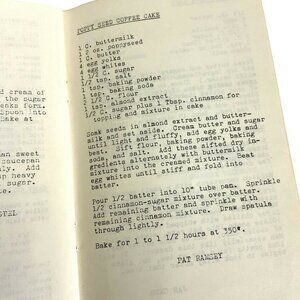 POPPY SEED COFFEE CAKE
1 C. buttermilk
1/2 oz. poppyseed
1 C. butter
4 egg yolks
4 egg whites
1 1/2 C. sugar
1/2 tsp. salt
1 tsp. baking powder
1 tsp. baking soda
2 1/2 C. flour
1 tsp. almond extract
1/2 C. sugar plus 1 Tbsp. cinnamon for
topping and mixture in cake
Soak seeds in almond extract and butter-
milk and set aside. Cream butter and sugar
until light and fluffy, add egg yolks and
best. Sift flour, baking powder, baking
soda, and salt. Add these sifted dry in-
gredients alternately with buttermilk
mixture into the creamed mixture. Beat
egg whites until stiff and fold into
batter.
Pour 1/2 batter into 10" tube pan. Sprinkle
1/2 cinnamon-sugar mixture over batter.
Add remaining batter and sprinkle with
remaining cinnamon mixture. Draw spatula
through lightly.
Bake for 1 to 1 1/2 hours at 350°.
PAT RAMSEY
d cream of
the sugar
cake form.
Spoon into
Bake at
an sweet
saucepan
ly. Add
up heavy
sugar.
e.
PEL